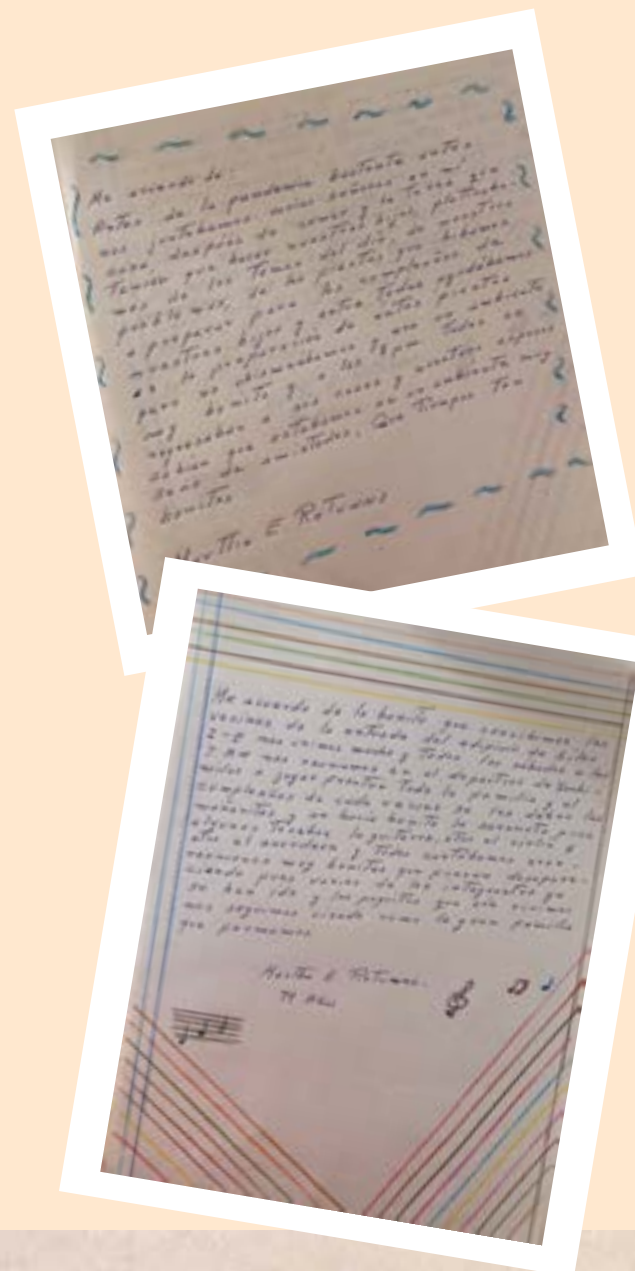 Me acuerdo de:
Antes de la pandemia bastante antes,
nos juntabamos varias señoras en mi
casa después de comer y la tarea que
tenían que hacer nuestros hijos, platicaba-
mos de los temas del día, de nuestros
problemas, de las piñatas que ibamos
a preparar para los cumpleaños de
nuestros hijos y entre todas ayudábamos
en la preparación de estas piñatas
pero no chismeabamos, era un ambiente
muy bonito y a las pm todas se
regresaban a sus casas y nuestros esposos
sabían que estabamos en un ambiente muy
sano de amistades. Que tiempos tan
bonitos
Martha E Retuano
Me acuerdo de lo bonito que convivimos los
vecinos de la entrada del edificio
nos unimos mucho y todos los sábados a las
nos reuniamos en el
a jugar toda la familia y al
cumpleaños de cada vecino se les daban las
mañanitas y se hacía bonita la serenata pues
algunos tocaban la guitarra, otro el violin o
otro el acordeón y todos cantabamos eran
momentos muy bonitos que fueron desapare-
ciendo pues varios de los integrantes ya
se han ido y los poquitos que aún vivimos
nos seguimos viendo como la gran familia
que formamos
Martha E Retuano.
79 Años